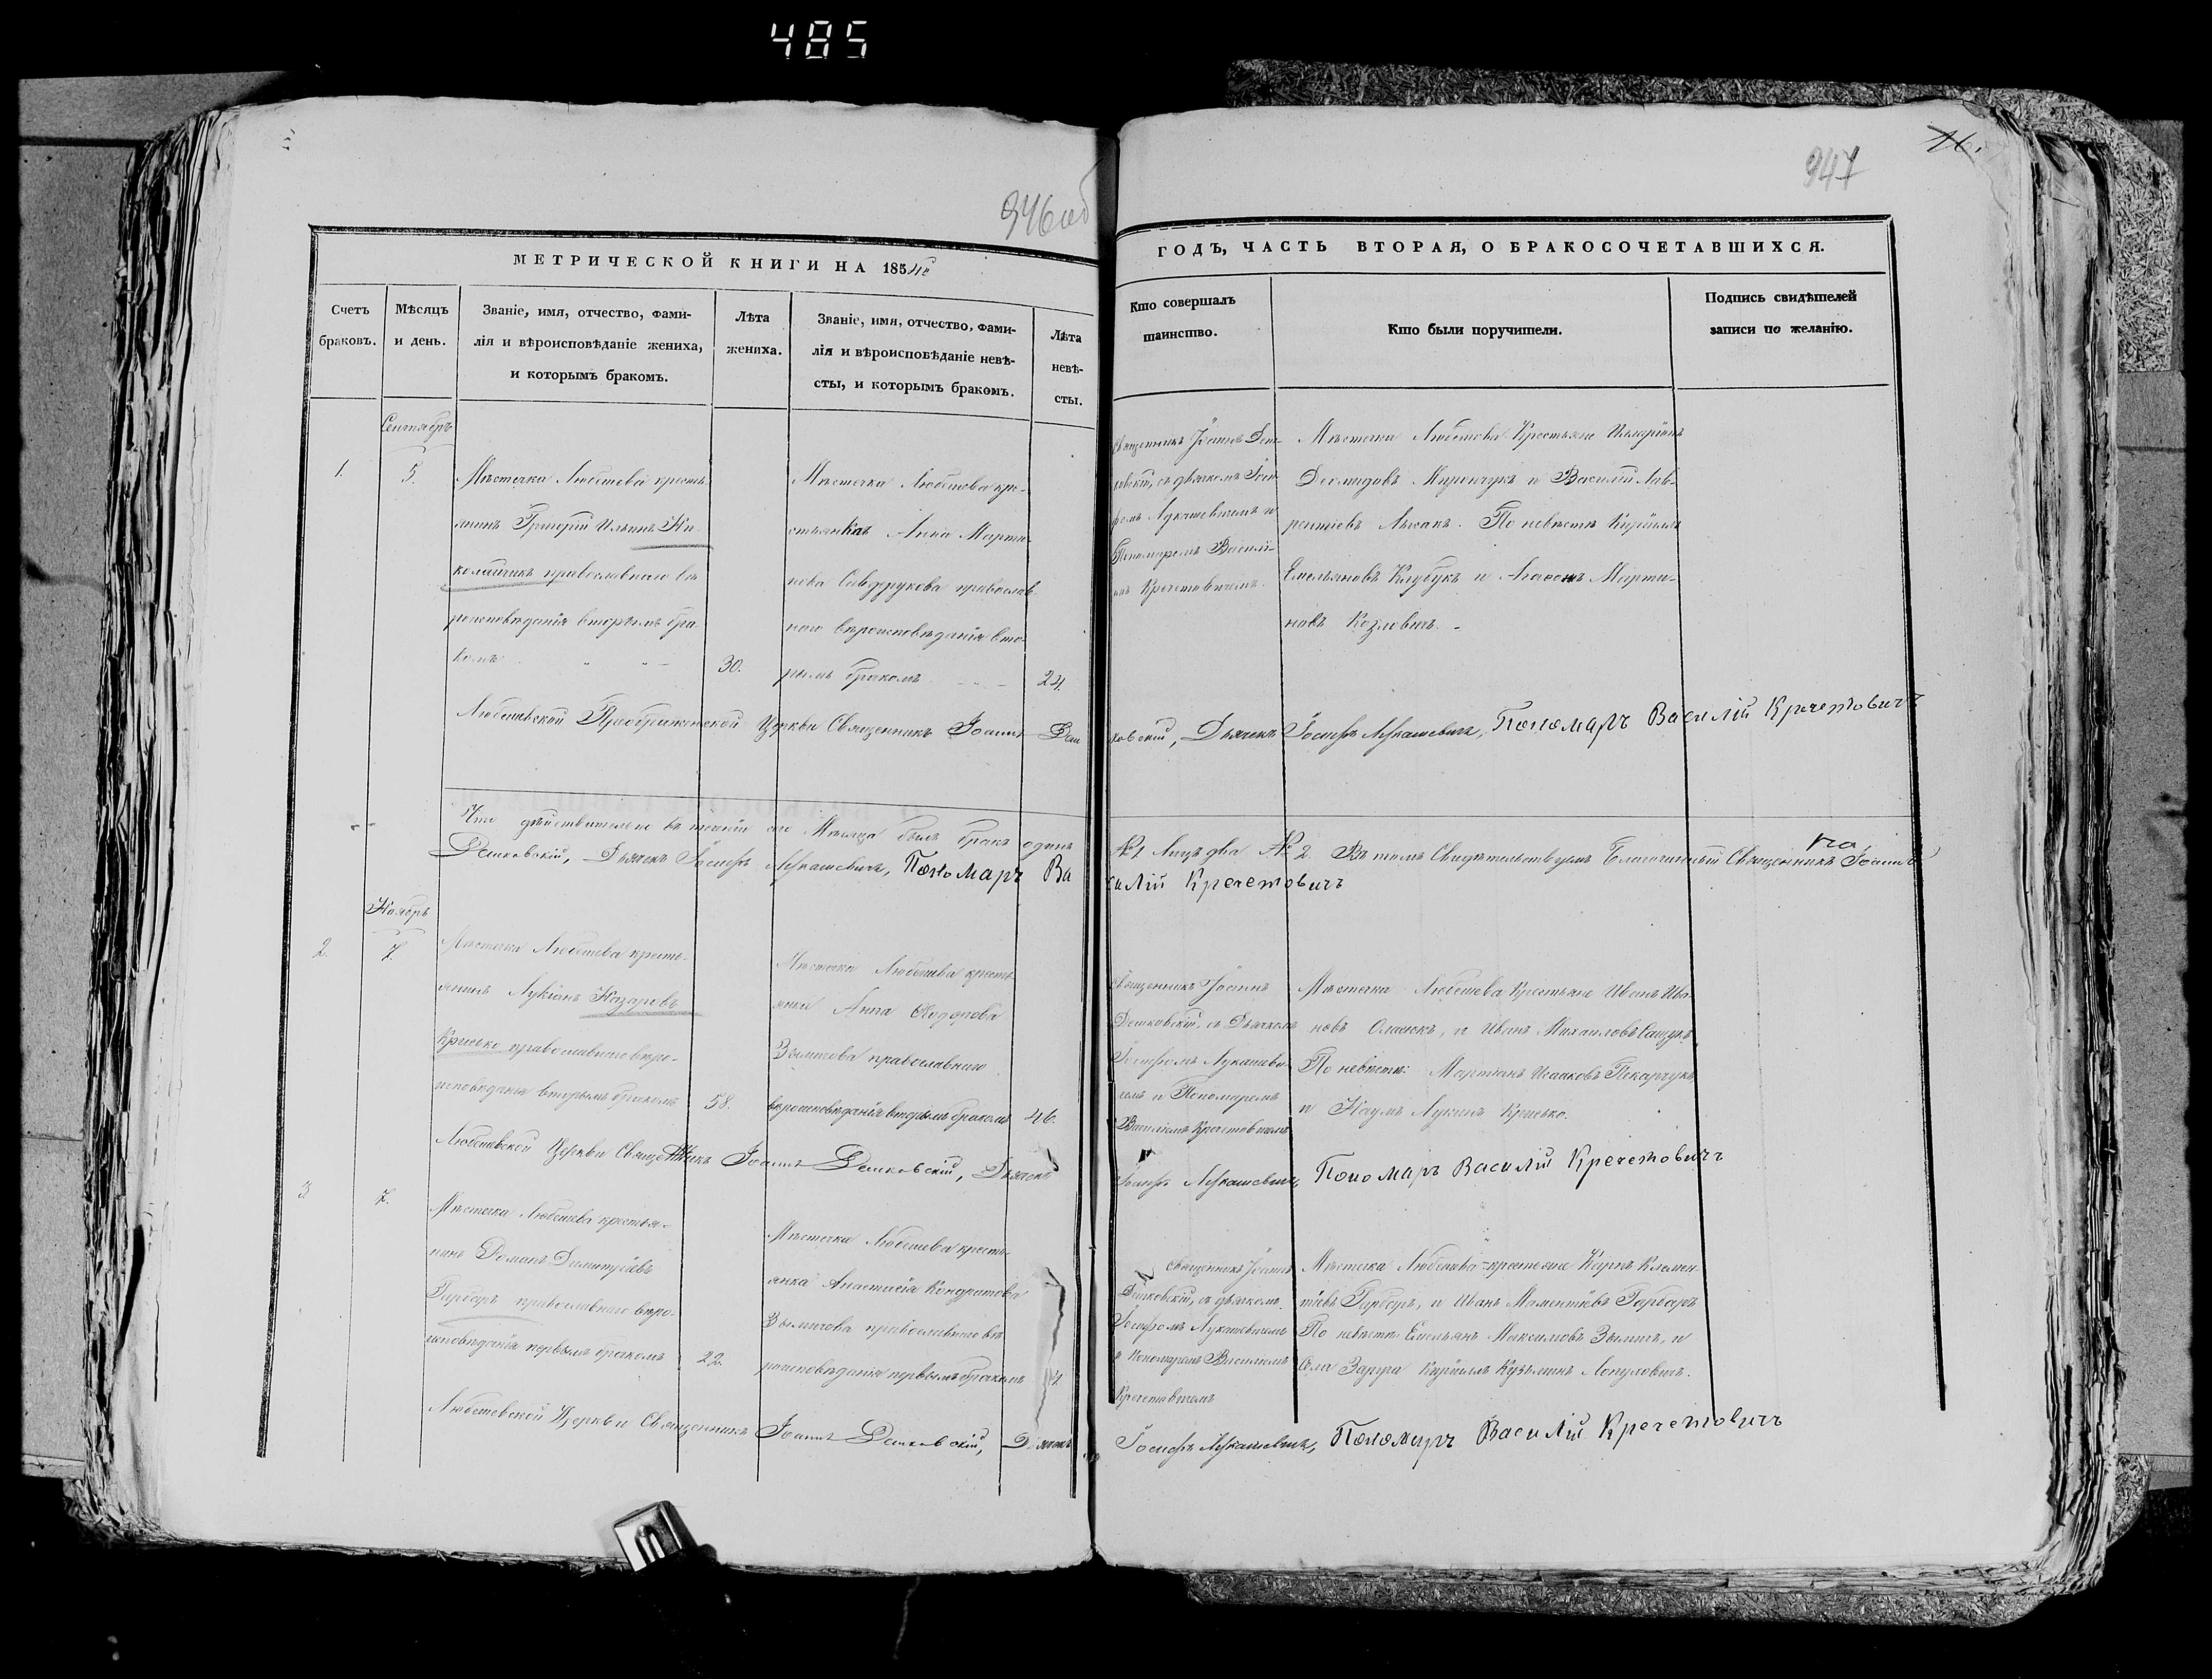 485
346 об
347
16.
МЕТРИЧЕСКОЙ КНИГИ НА 185
ГОДЪ, ЧАСТЬ ВТОРАЯ, О БРАКОСОЧЕТАВШИХСЯ.
Счетъ
браковъ.
Мѣсяцъ
и день.
Званіе, имя, отчество, фами-
лія и вѣроисповѣданіе жениха,
и которымъ бракомъ.
Лѣта
жениха.
Званіе, имя, отчество, фами-
лія и вѣроисповѣданіе невѣ-
сты, и которымъ бракомъ.
Лѣта
невѣ-
сты.
Кто совершалъ
таинство.
Кто были поручители.
Подпись свидѣтелей
записи по желанію.
Сентябрь
1.
5.
Мѣстечка Любешева кресть-
янинъ Григорій Ильинъ Ни-
колайчикъ православнаго вѣ
роисповѣданія вторымъ бра-
комъ
30.
Мѣстечка Любешова кре-
стьянка Анна Марти-
нова православ-
наго вѣроисповѣданія вто-
рымъ бракомъ
24.
Священникъ Іоаннъ Деш-
ковскій, съ дьячкомъ Іоси-
фомъ Лукашевичемъ и
Пономаремъ Василі-
емъ Кречетовичемъ.
Мѣстечка Любешова Крестьяне Иларіонъ
Деомидовъ Мирончукъ и Василій Лав-
рентіевъ Лысакъ. По невѣстѣ Кириллъ
Емельяновъ Клубукъ и Агафонъ Марти-
новъ Козловичъ.
Любешевской Преображенской Церкви Священникъ Іоаннъ Деш
ковскій, Дьячекъ Іосифъ Лукашевичъ, Пономарь Василій Кречетовичъ
Что дѣйствительно въ теченіи сего Мѣсяца былъ бракъ одинъ
№ 1 Лицъ два № 2. Въ томъ Свидѣтельствуемъ Благочинный Священникъ Іоаннъ
Дешковскій, Дьячекъ Іосифъ Лукашевичъ, Пономарь Ва
силій Кречетовичъ
Ноябрь
2.
7.
Мѣстечка Любешева кресть-
янинъ Лукіанъ Назаровъ
Крисько православнаго вѣро-
исповѣданія вторымъ бракомъ
58.
Мѣстечка Любешева кресть-
янка Анна Ѳедорова
Зымичова православнаго
вѣроисповѣданія вторымъ бракомъ
46.
Священникъ Іоаннъ
Дешковскій, съ Дьячкомъ
Іосифомъ Лукашеви-
чемъ и Пономаремъ
Василіемъ Кречетовичемъ
Мѣстечка Любешева Крестьяне Иванъ Ива-
новъ и Иванъ Михайловъ
По невѣстѣ: Мартинъ Исааковъ Пекарчукъ
и Наумъ Лукинъ Крисько.
Любешевской Церкви Священникъ Іоаннъ Дешковскій, Дьячекъ
Іосифъ Лукашевичъ, Пономарь Василій Кречетовичъ
3.
7.
Мѣстечка Любешева крестья-
нинъ Романъ Димитріевъ
Гарбаръ православнаго вѣро-
исповѣданія первымъ бракомъ
22.
Мѣстечка Любешева кресть-
янка Анастасія Кондратова
Зымичова православнаго вѣ
роисповѣданія первымъ бракомъ
Священникъ Іоаннъ
Дешковскій, съ дьячкомъ
Іосифомъ Лукашевичемъ
и Пономаремъ Василіемъ
Кречетовичемъ
Мѣстечка Любешова крестьяне Карпъ Клемен-
тіевъ Гарбаръ, и Иванъ Гарбаръ
По невѣстѣ Емельянъ Максимовъ Зымичъ, и
Села Кириллъ Кузьминъ
Любешевской Церкви Священникъ Іоаннъ Дешковскій, Дьячекъ
Іосифъ Лукашевичъ, Пономарь Василій Кречетовичъ